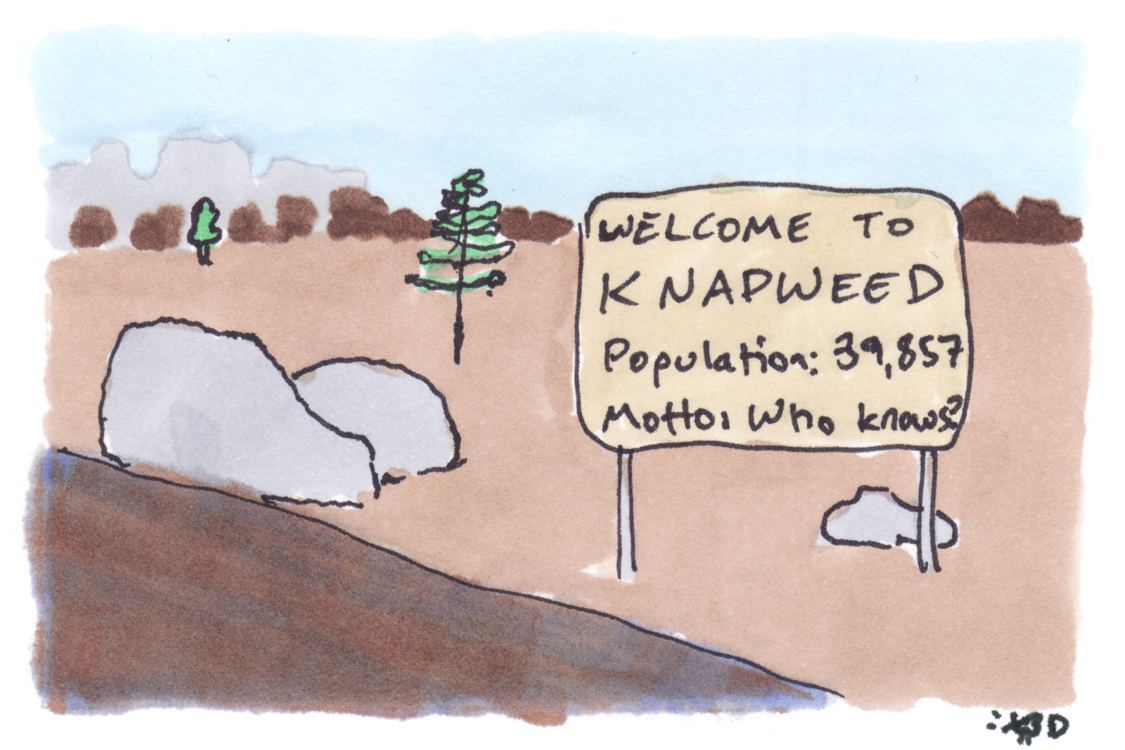 WELCOME TO
KNAPWEED
Population: 39,857
Motto: Who knows?